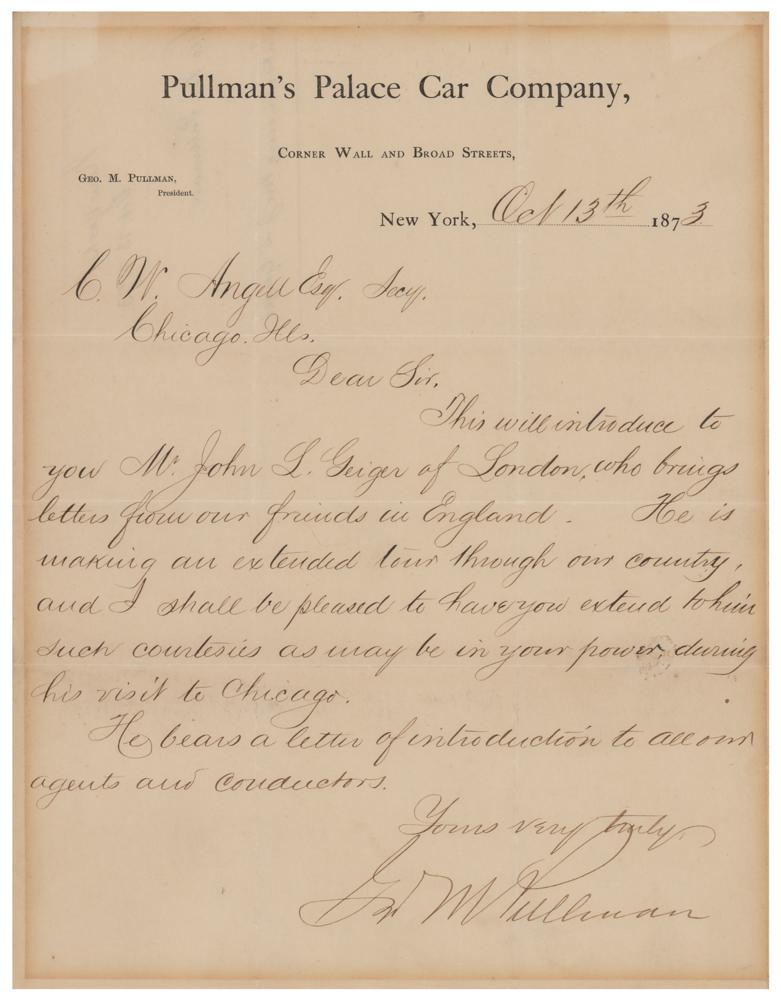 Pullman's Palace Car Company,
Corner Wall and Broad Streets,
Geo. M. Pullman,
President.
New York, Oct 13th 1873
C. W. Angell Esq. Secy.
Chicago. Ills.
Dear Sir,
This will introduce to
you Mr John L. Geiger of London, who brings
letters from our friends in England. He is
making an extended tour through our country,
and I shall be pleased to have you extend to him
such courtesies as may be in your power, during
his visit to Chicago.
He bears a letter of introduction to all our
agents and conductors.
Yours very truly,
Geo M Pullman